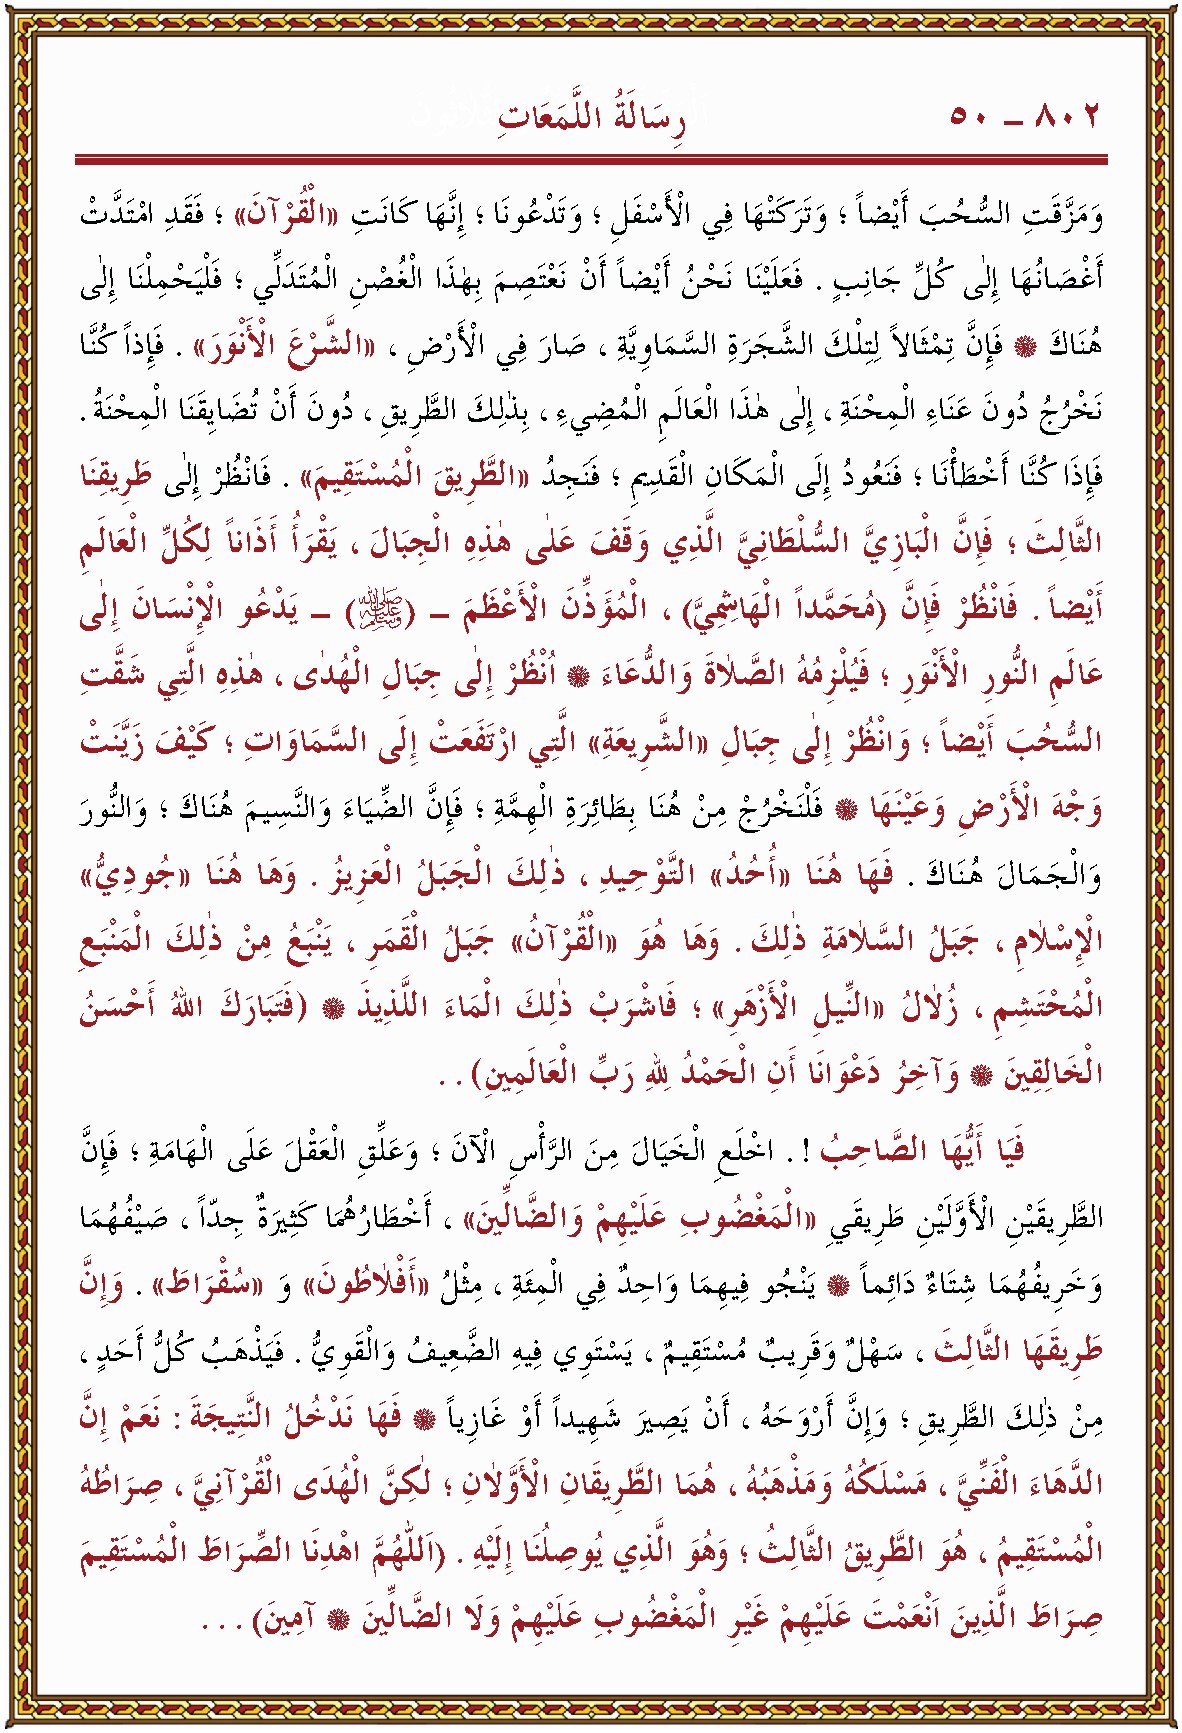 ٨٠٢ ــ ٥٠ رِسَالَةُ اللَّمَعَاتِ
وَمَزَّقَتِ السُّحُبَ أَيْضاً ؛ وَتَرَكَتْهَا فِي الْأَسْفَلِ ؛ وَتَدْعُونَا ؛ إِنَّهَا كَانَتِ «الْقُرْآنَ» ؛ فَقَدِ امْتَدَّتْ
أَغْصَانُهَا إِلٰى كُلِّ جَانِبٍ . فَعَلَيْنَا نَحْنُ أَيْضاً أَنْ نَعْتَصِمَ بِهٰذَا الْغُصْنِ الْمُتَدَلِّي ؛ فَلْيَحْمِلْنَا إِلٰى
هُنَاكَ ۞ فَإِنَّ تِمْثَالاً لِتِلْكَ الشَّجَرَةِ السَّمَاوِيَّةِ ، صَارَ فِي الْأَرْضِ ، «الشَّرْعَ الْأَنْوَرَ» . فَإِذاً كُنَّا
نَخْرُجُ دُونَ عَنَاءِ الْمِحْنَةِ ، إِلٰى هٰذَا الْعَالَمِ الْمُضِيءِ ، بِذٰلِكَ الطَّرِيقِ ، دُونَ أَنْ تُضَايِقَنَا الْمِحْنَةُ .
فَإِذَا كُنَّا أَخْطَأْنَا ؛ فَنَعُودُ إِلَى الْمَكَانِ الْقَدِيمِ ؛ فَنَجِدُ «الطَّرِيقَ الْمُسْتَقِيمَ» . فَانْظُرْ إِلٰى طَرِيقِنَا
الثَّالِثَ ؛ فَإِنَّ الْبَازِيَّ السُّلْطَانِيَّ الَّذِي وَقَفَ عَلٰى هٰذِهِ الْجِبَالَ ، يَقْرَأُ أَذَاناً لِكُلِّ الْعَالَمِ
أَيْضاً . فَانْظُرْ فَإِنَّ (مُحَمَّداً الْهَاشِمِيَّ) ، الْمُؤَذِّنَ الْأَعْظَمَ ــ (ﷺ) ــ يَدْعُو الْإِنْسَانَ إِلٰى
عَالَمِ النُّورِ الْأَنْوَرِ ؛ فَيُلْزِمُهُ الصَّلَاةَ وَالدُّعَاءَ ۞ اُنْظُرْ إِلٰى جِبَالِ الْهُدٰى ، هٰذِهِ الَّتِي شَقَّتِ
السُّحُبَ أَيْضاً ؛ وَانْظُرْ إِلٰى جِبَالِ «الشَّرِيعَةِ» الَّتِي ارْتَفَعَتْ إِلَى السَّمَاوَاتِ ؛ كَيْفَ زَيَّنَتْ
وَجْهَ الْأَرْضِ وَعَيْنَهَا ۞ فَلْنَخْرُجْ مِنْ هُنَا بِطَائِرَةِ الْهِمَّةِ ؛ فَإِنَّ الضِّيَاءَ وَالنَّسِيمَ هُنَاكَ ؛ وَالنُّورَ
وَالْجَمَالَ هُنَاكَ . فَهَا هُنَا «أُحُدُ» التَّوْحِيدِ ، ذٰلِكَ الْجَبَلُ الْعَزِيزُ . وَهَا هُنَا «جُودِيُّ»
الْإِسْلَامِ ، جَبَلُ السَّلَامَةِ ذٰلِكَ . وَهَا هُوَ «الْقُرْآنُ» جَبَلُ الْقَمَرِ ، يَنْبَعُ مِنْ ذٰلِكَ الْمَنْبَعِ
الْمُحْتَشِمِ ، زُلَالُ «النِّيلِ الْأَزْهَرِ» ؛ فَاشْرَبْ ذٰلِكَ الْمَاءَ اللَّذِيذَ ۞ (فَتَبَارَكَ اللهُ أَحْسَنُ
الْخَالِقِينَ ۞ وَآخِرُ دَعْوَانَا أَنِ الْحَمْدُ لِلهِ رَبِّ الْعَالَمِينِ) . .
فَيَا أَيُّهَا الصَّاحِبُ ! . اخْلَعِ الْخَيَالَ مِنَ الرَّأْسِ الْآنَ ؛ وَعَلِّقِ الْعَقْلَ عَلَى الْهَامَةِ ؛ فَإِنَّ
الطَّرِيقَيْنِ الْأَوَّلَيْنِ طَرِيقَيِ «الْمَغْضُوبِ عَلَيْهِمْ وَالضَّالِّينَ» ، أَخْطَارُهُمَا كَثِيرَةٌ جِدّاً ، صَيْفُهُمَا
وَخَرِيفُهُمَا شِتَاءٌ دَائِماً ۞ يَنْجُو فِيهِمَا وَاحِدٌ فِي الْمِئَةِ ، مِثْلُ «أَفْلَاطُونَ» وَ «سُقْرَاطَ» . وَإِنَّ
طَرِيقَهَا الثَّالِثَ ، سَهْلٌ وَقَرِيبٌ مُسْتَقِيمٌ ، يَسْتَوِي فِيهِ الضَّعِيفُ وَالْقَوِيُّ . فَيَذْهَبُ كُلُّ أَحَدٍ ،
مِنْ ذٰلِكَ الطَّرِيقِ ؛ وَإِنَّ أَرْوَحَهُ ، أَنْ يَصِيرَ شَهِيداً أَوْ غَازِياً ۞ فَهَا نَدْخُلُ النَّتِيجَةَ : نَعَمْ إِنَّ
الدَّهَاءَ الْفَنِّيَّ ، مَسْلَكُهُ وَمَذْهَبُهُ ، هُمَا الطَّرِيقَانِ الْأَوَّلَانِ ؛ لٰكِنَّ الْهُدَى الْقُرْآنِيَّ ، صِرَاطُهُ
الْمُسْتَقِيمُ ، هُوَ الطَّرِيقُ الثَّالِثُ ؛ وَهُوَ الَّذِي يُوصِلُنَا إِلَيْهِ . (اَللّٰهُمَّ اهْدِنَا الصِّرَاطَ الْمُسْتَقِيمَ
صِرَاطَ الَّذِينَ اَنْعَمْتَ عَلَيْهِمْ غَيْرِ الْمَغْضُوبِ عَلَيْهِمْ وَلَا الضَّالِّينَ ۞ آمِينَ) . . .